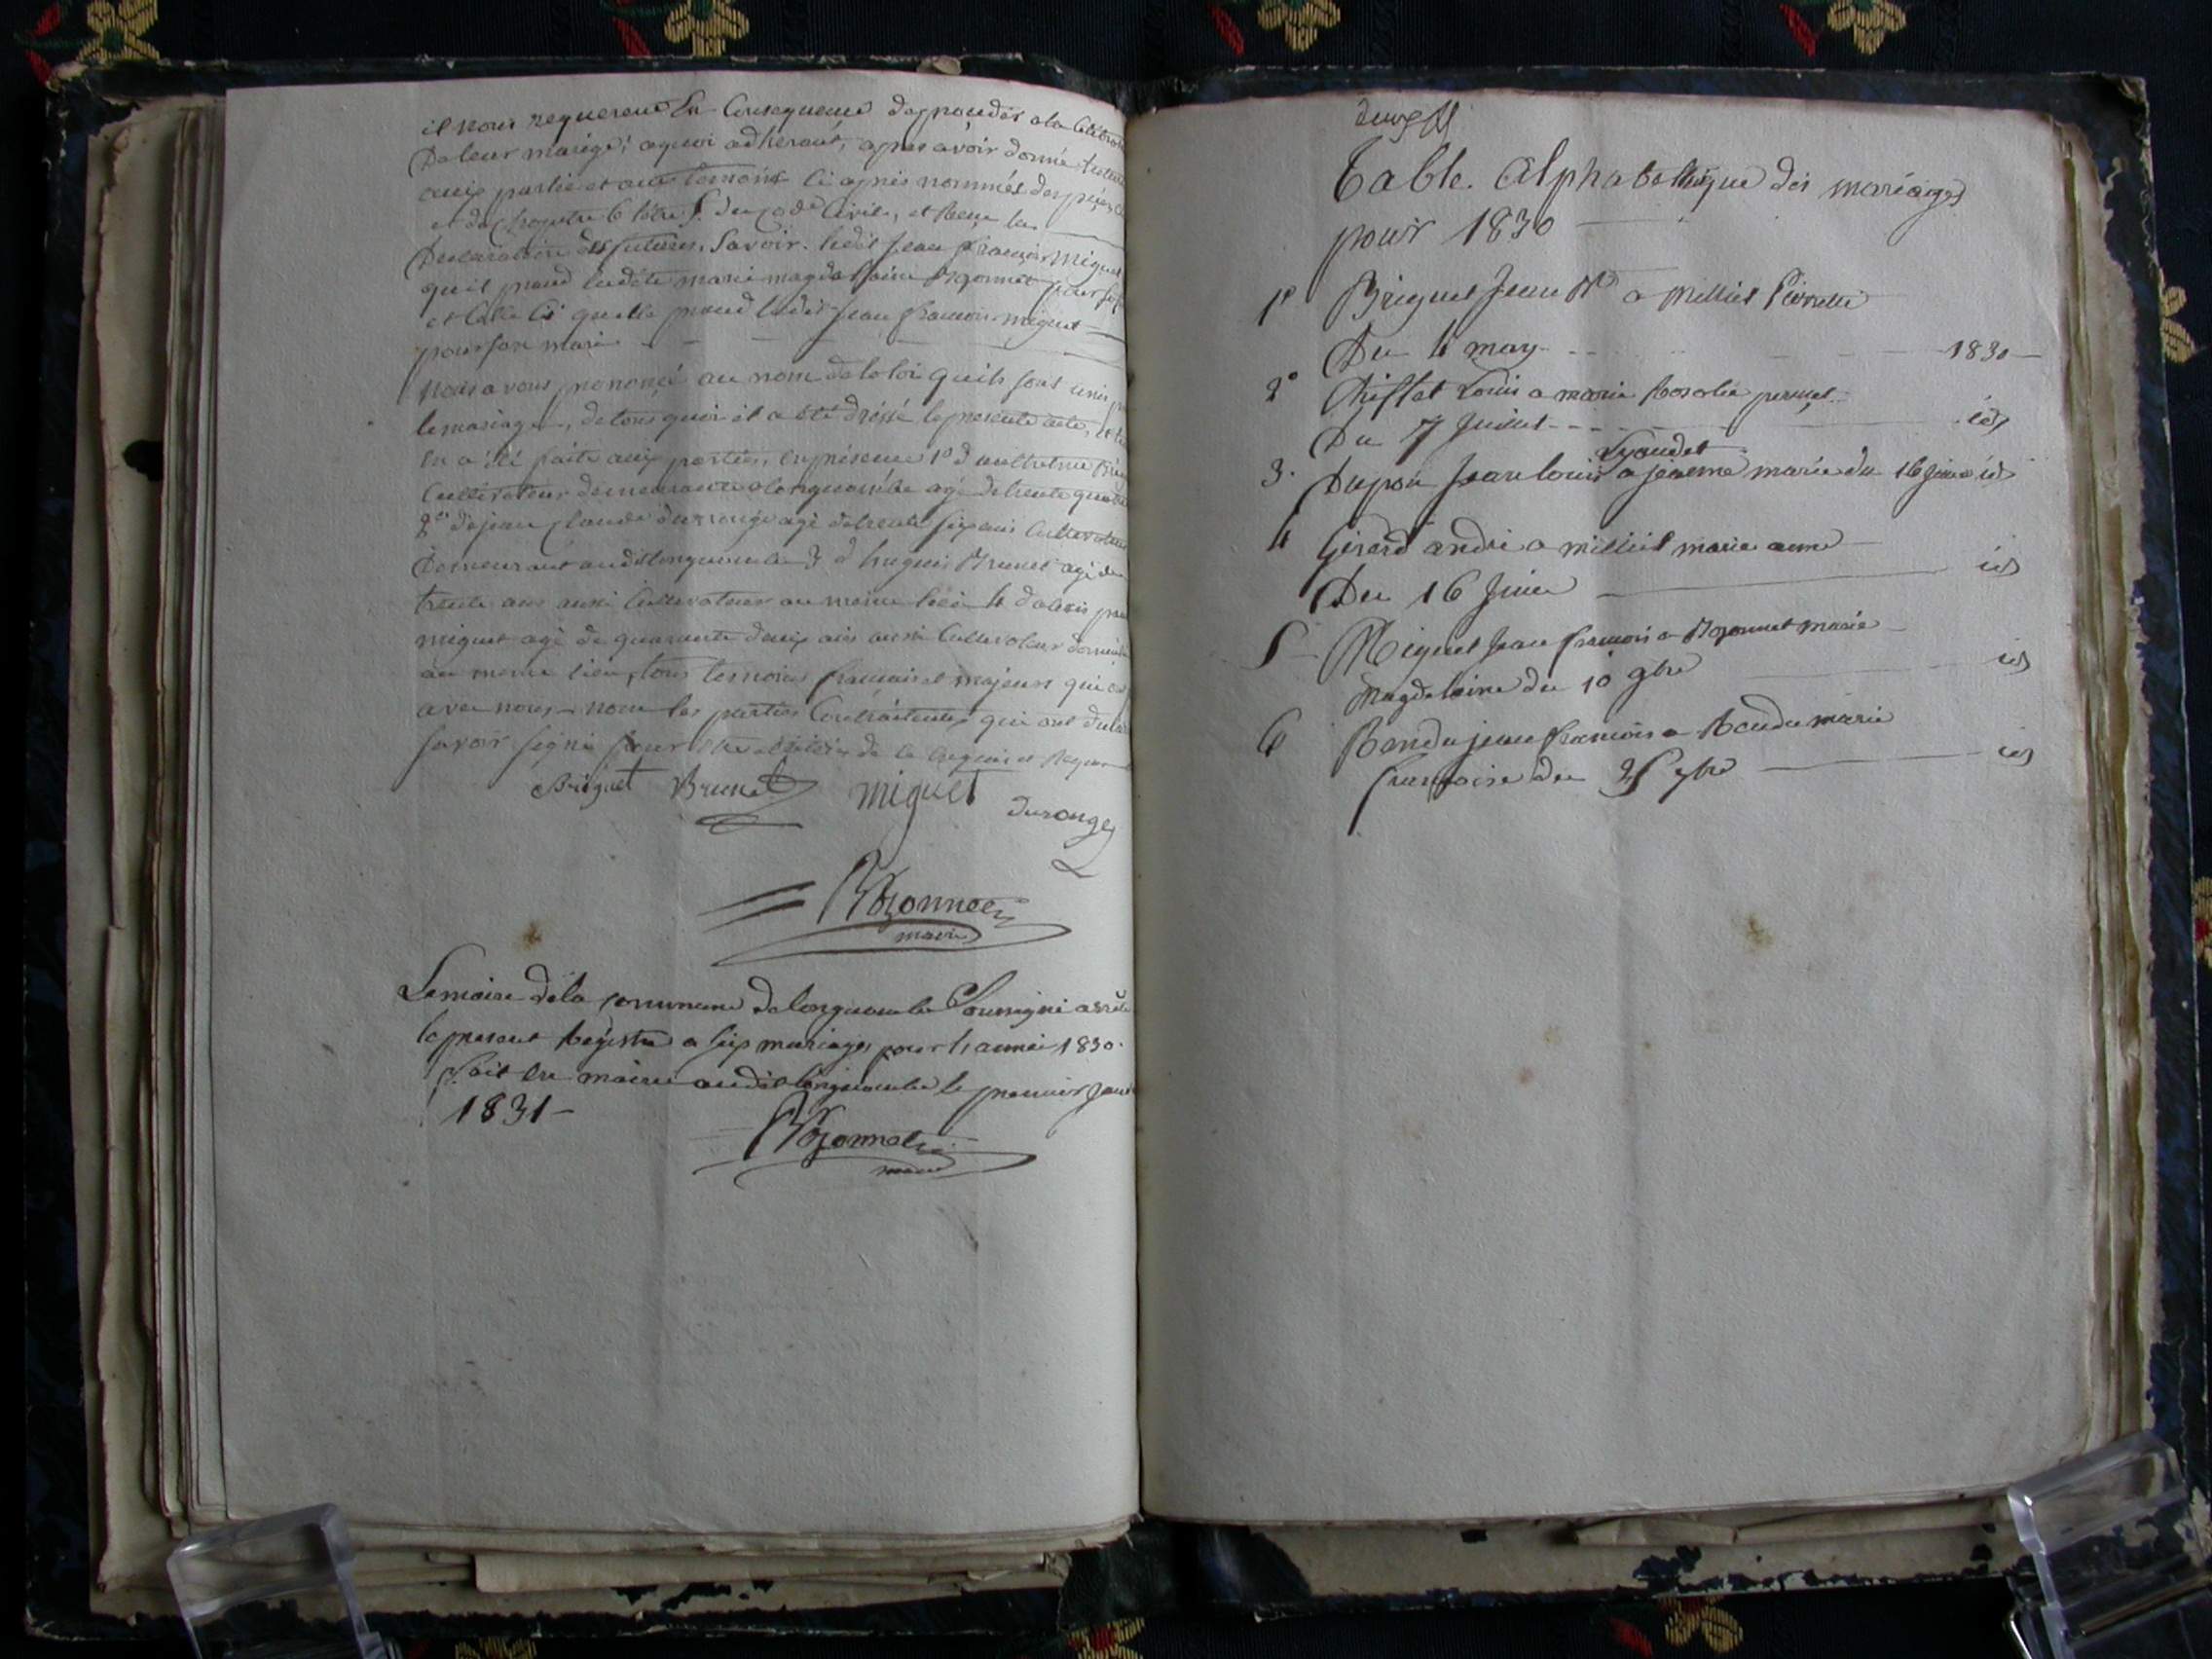 il nous requerent En Consequence de proceder a la Celebration
De leur mariage; aquoi adherant, apres avoir donné lecture
aux partie et aux temoins ci apres nommés des pieces
et du Chapitre 6 titre 5. du code Civile, et Recu la
Declaration des futures, Savoir. ledit Jean François Miguet
qu il prend ladite marie magdelaine Bozonnet pour
et Celle Ci quelle prend ledit Jean francois miguet
pour son mari
Nous avons prononcé au nom de la loi quils sont unis
le mariage, de tous quoi il a été dréssé le présente acte,
en a été faite aux parties, en présence 1º d
Cultivateur demeurant a longecombe agé de trente quatre
2º de jean Claude durouge agé de trente six ans Cultivateur
Demeurant audit longecombe 3 d hugues Brunet agé de
trente ans aussi Cultivateur au meme lieu 4 d alexis
miguet agé de quarante deux ans aussi Cultivateur
au meme lieu, tous temoins francais et majeurs qui
avec nous, non les parties Contractantes qui ont
savoir signé pour
Briguet Brunet miguet Durouge
Bozonnet
maire
Le maire de la commune de longecombe Soussigné
le present Registre a six mariages pour l année 1830.
Fait en mairie audit longecombe le premier
1831 -
Bozonnet
maire
Table. Alphabethique des mariages
pour 1830
1º Briguet Jean a Milliet Pierrette
Du 4 may 1830
2º Louis a marie Rosalie
Du 7 Juillet id
Lyaudet
3. Dupon Jean louis a jeanne marie du 16 Juin id
4 Girard andré a milliet marie anne
Du 16 Juin id
5 Miguet Jean francois a Bozonnet marie
Magdelaine du 10 9bre id
6 Rendu jean francois a Rendu marie
francoise du 25 9bre id